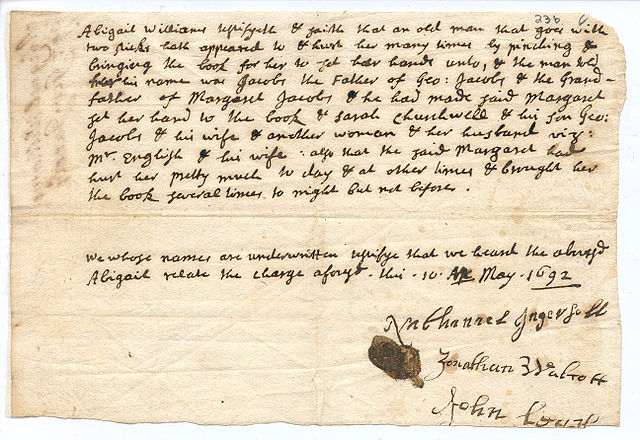 236
Abigail Williams testifyeth & saith that an old man that goes with
two sticks hath appeared to & hurt her many times by pinching &
bringing the book for her to set her hand unto, & the man told
her his name was Jacobs the Father of Geo: Jacobs & the Grand-
father of Margaret Jacobs & he had made said Margaret
set her hand to the book & Sarah Churchwell & his son Geo:
Jacobs & his wife & another woman & her husband viz:
Mr. English & his wife: also that the said Margaret had
hurt her pretty much to day & at other times & brought her
the book several times to night but not before.
We whose names are underwritten testifye that we heard the abovesd
Abigail relate the charge aforesd. this . 10. May . 1692
Nathanael Ingersoll
Jonathan Walcott
John